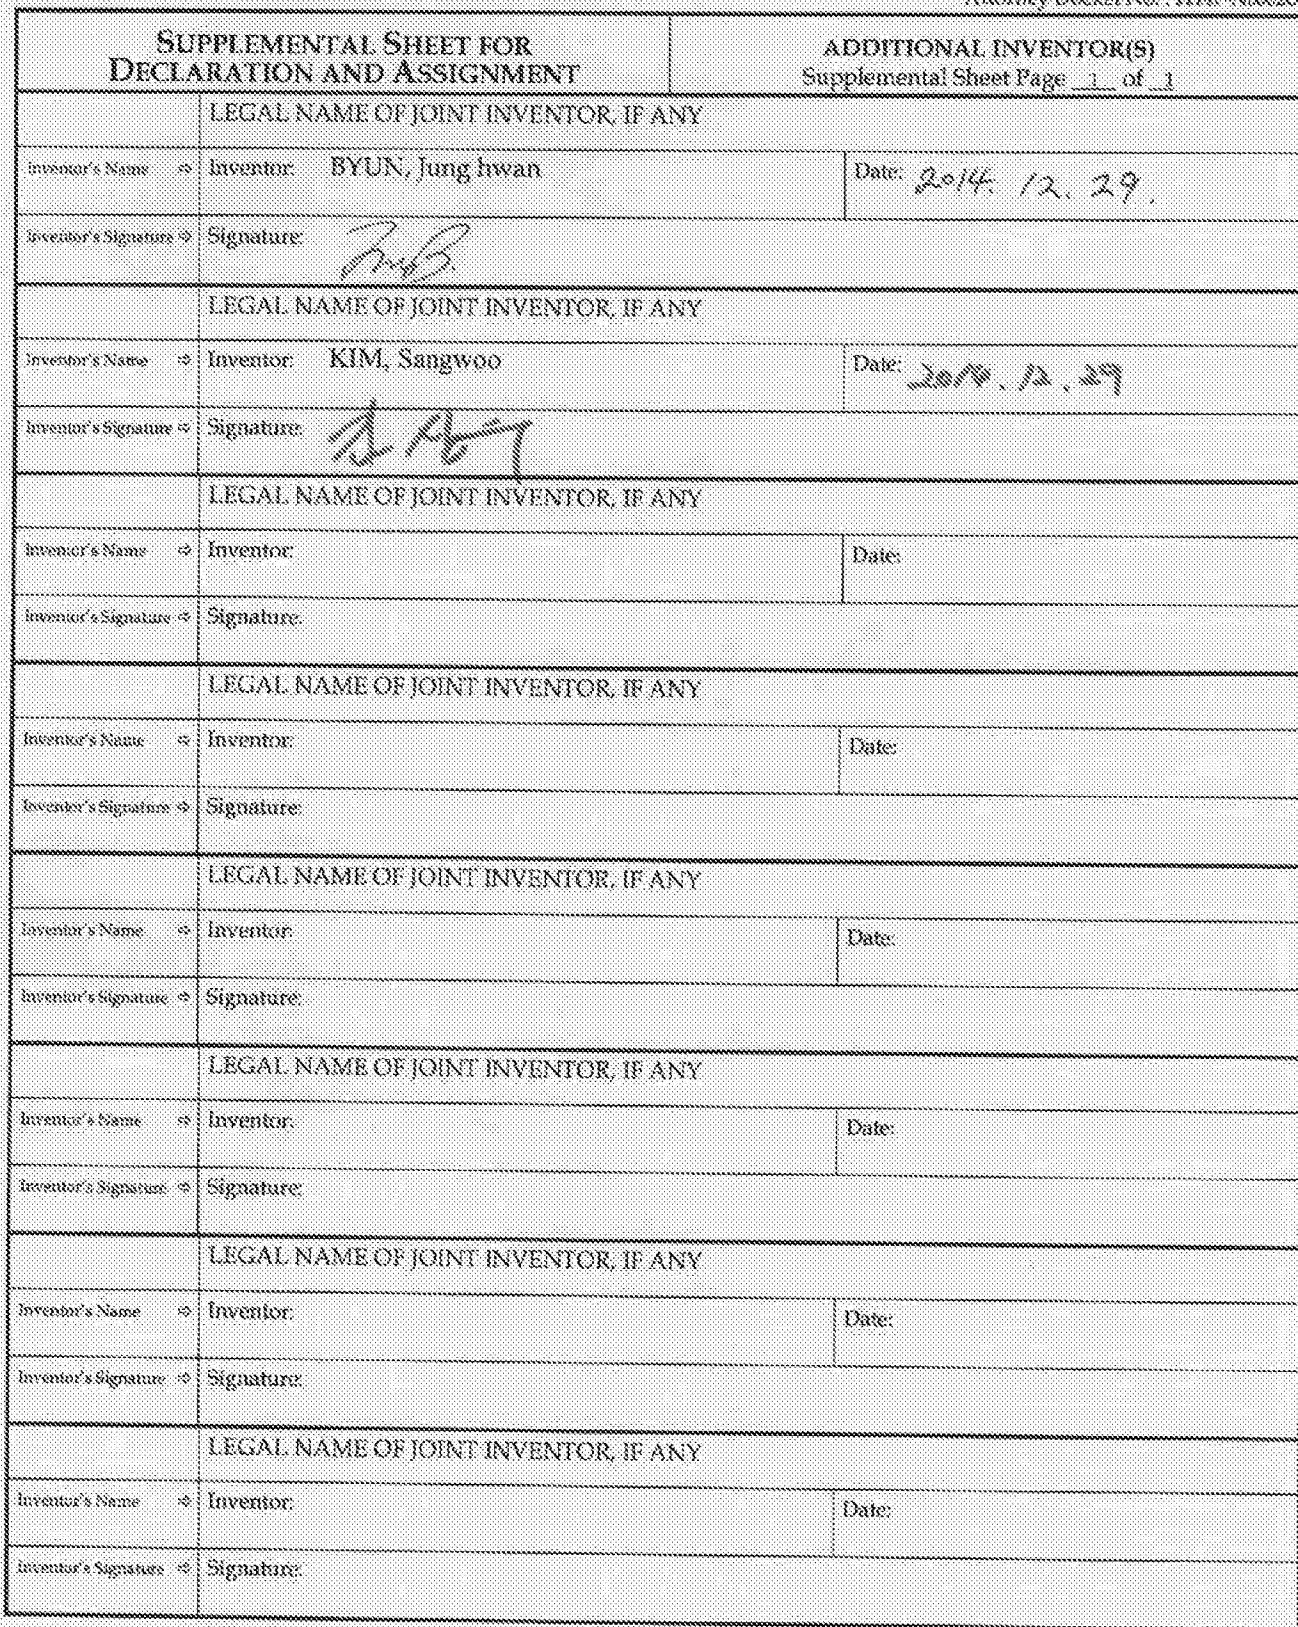 SUPPLEMENTAL SHEET FOR
DECLARATION AND ASSIGNMENT
ADDITIONAL INVENTOR(S)
Supplemental Sheet Page 1 of 1
LEGAL NAME OF JOINT INVENTOR, IF ANY
Inventor's Name ⇨ Inventor: BYUN, Jung hwan Date: 2014. 12. 29.
Inventor's Signature ⇨ Signature:
LEGAL NAME OF JOINT INVENTOR, IF ANY
Inventor's Name ⇨ Inventor: KIM, Sangwoo Date: 2014. 12. 29
Inventor's Signature ⇨ Signature:
LEGAL NAME OF JOINT INVENTOR, IF ANY
Inventor's Name ⇨ Inventor: Date:
Inventor's Signature ⇨ Signature:
LEGAL NAME OF JOINT INVENTOR, IF ANY
Inventor's Name ⇨ Inventor: Date:
Inventor's Signature ⇨ Signature:
LEGAL NAME OF JOINT INVENTOR, IF ANY
Inventor's Name ⇨ Inventor: Date:
Inventor's Signature ⇨ Signature:
LEGAL NAME OF JOINT INVENTOR, IF ANY
Inventor's Name ⇨ Inventor: Date:
Inventor's Signature ⇨ Signature:
LEGAL NAME OF JOINT INVENTOR, IF ANY
Inventor's Name ⇨ Inventor: Date:
Inventor's Signature ⇨ Signature:
LEGAL NAME OF JOINT INVENTOR, IF ANY
Inventor's Name ⇨ Inventor: Date:
Inventor's Signature ⇨ Signature: